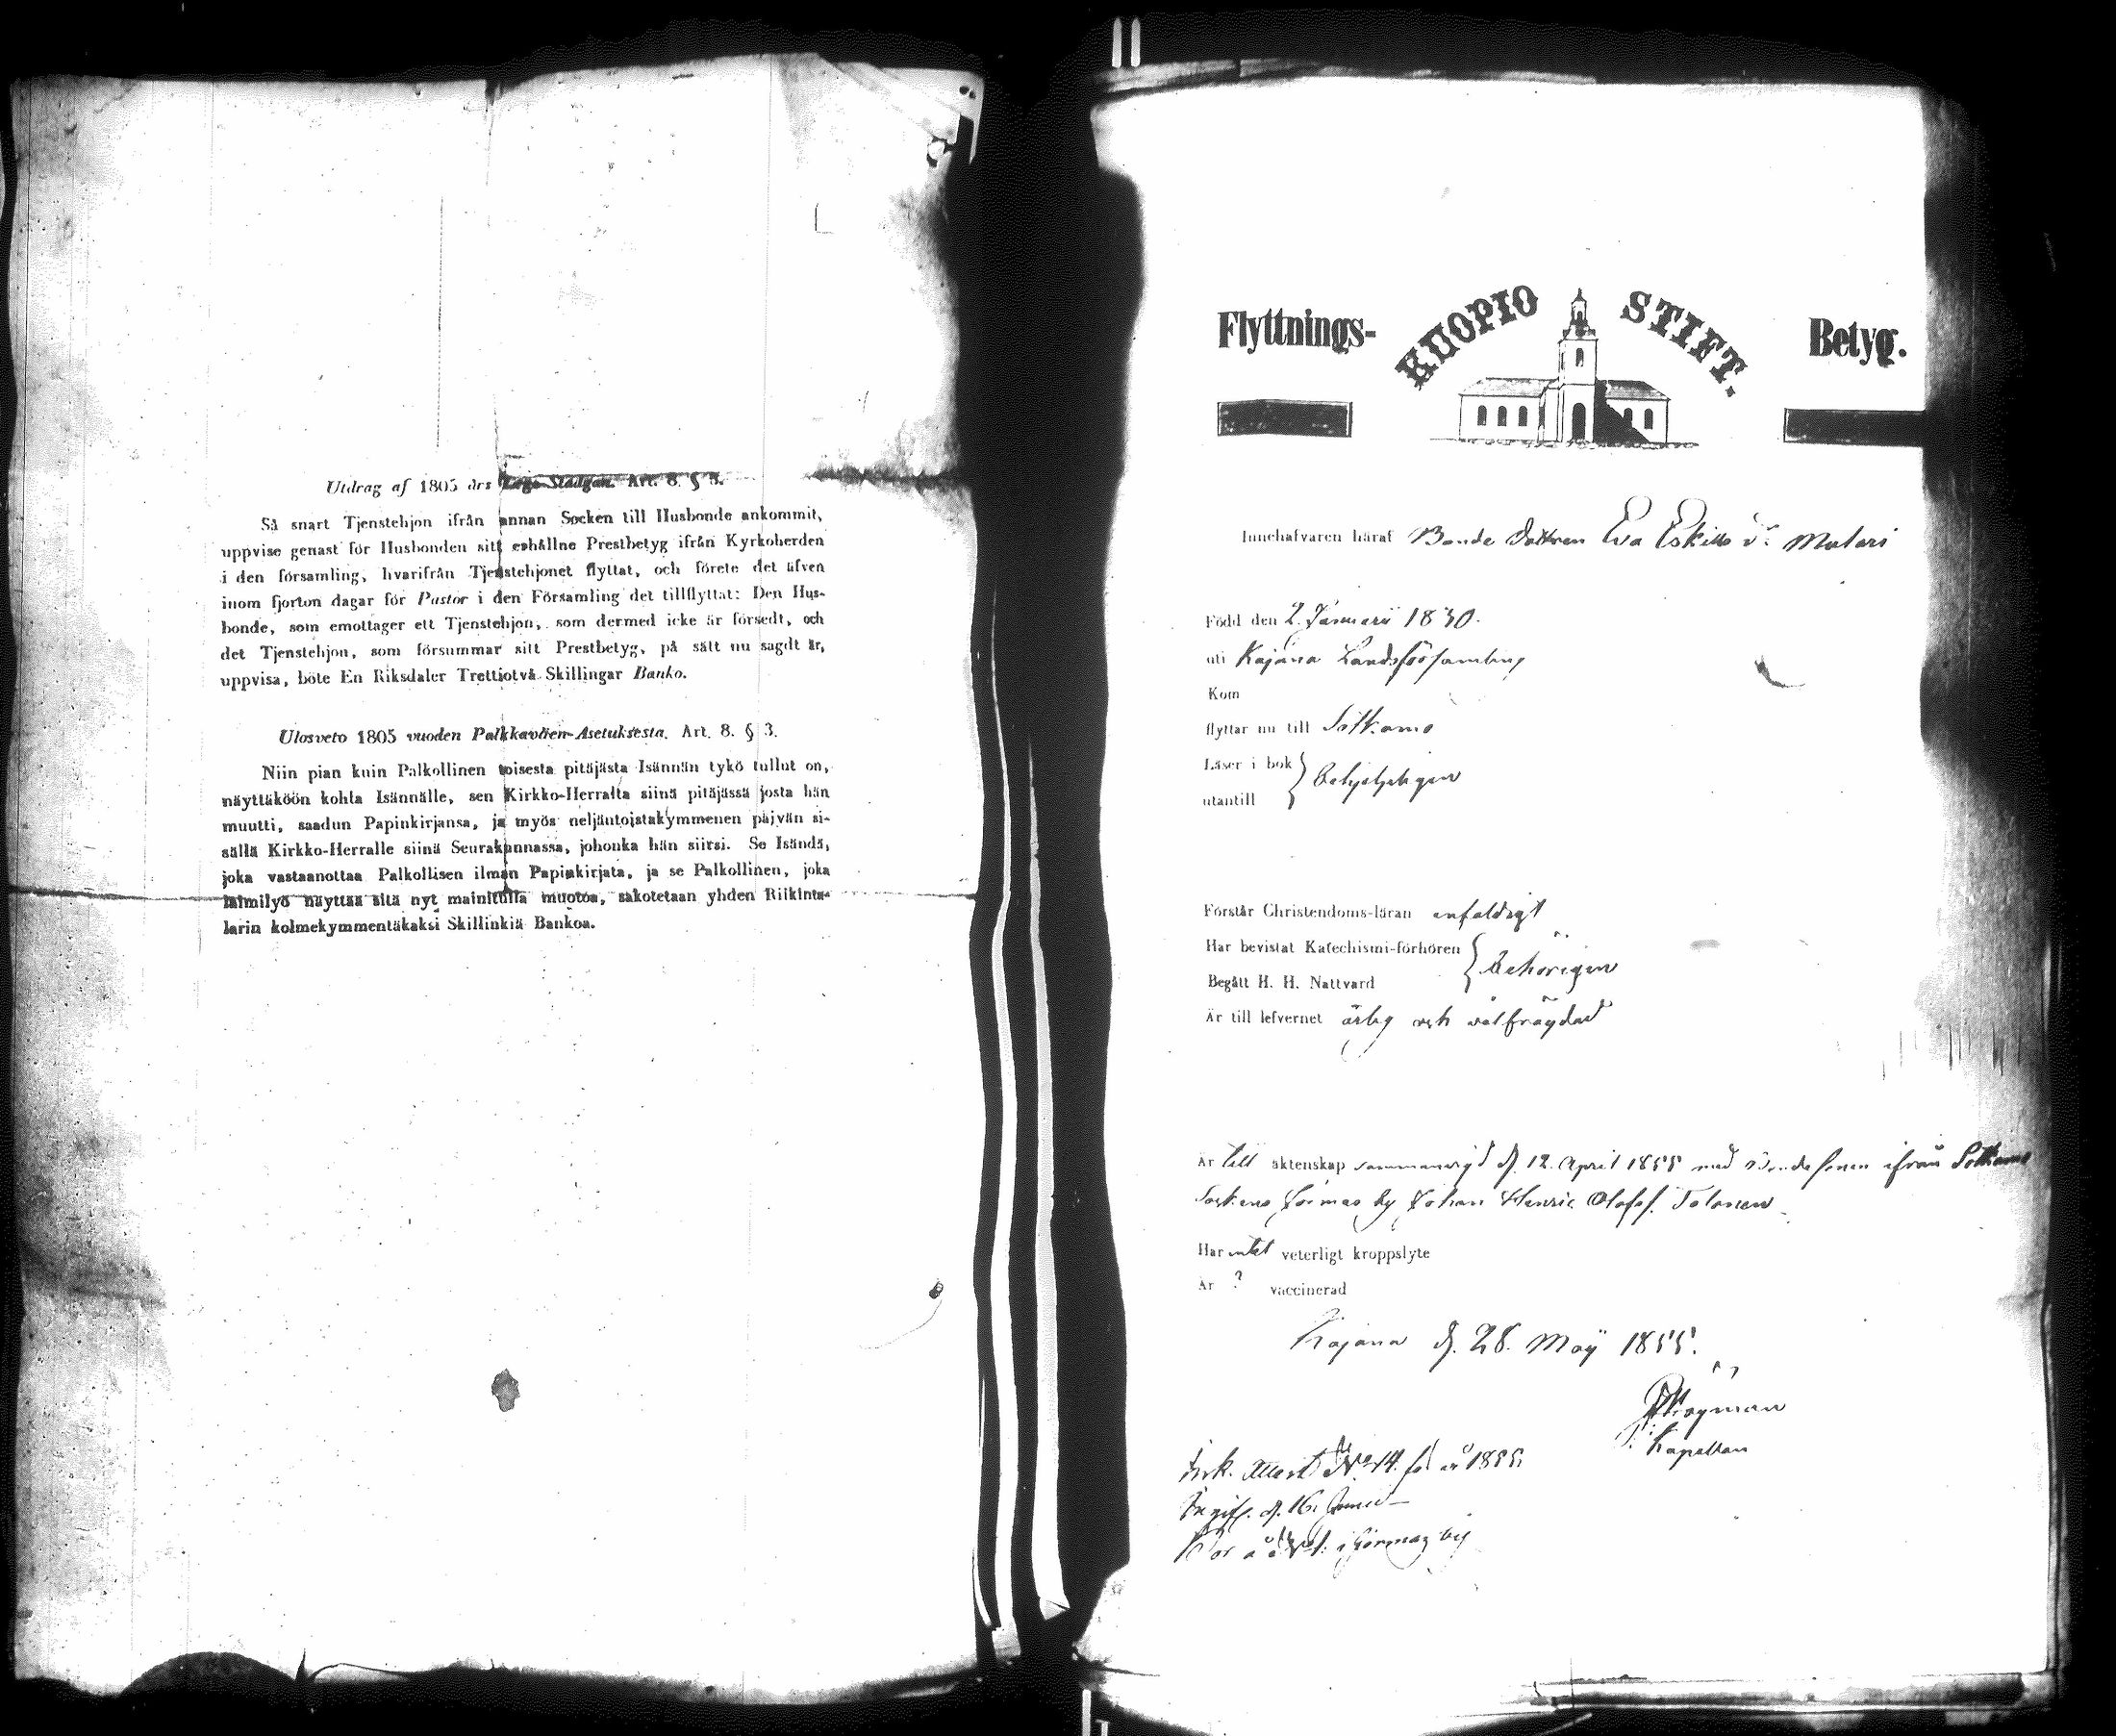 Utdrag af 1805 års Lego-Stadgan. Art. 8. § 3.
Så snart Tjenstehjon ifrån annan Socken till Husbonde ankommit,
uppvise genast för Husbonden sitt erhållne Prestbetyg ifrån Kyrkoherden
i den församling, hvarifrån Tjenstehjonet flyttat, och förete det äfven
inom fjorton dagar för Pastor i den Församling det tillflyttat: Den Hus-
bonde, som emottager ett Tjenstehjon, som dermed icke är försedt, och
det Tjenstehjon, som försummar sitt Prestbetyg, på sätt nu sagdt är,
uppvisa, böte En Riksdaler Trettiotvå Skillingar Banko.
Ulosveto 1805 vuoden Palkkaväen-Asetuksesta. Art. 8. § 3.
Niin pian kuin Palkollinen toisesta pitäjästä Isännän tykö tullut on,
näyttäköön kohta Isännälle, sen Kirkko-Herralta siinä pitäjässä josta hän
muutti, saadun Papinkirjansa, ja myös neljäntoistakymmenen päivän si-
sällä Kirkko-Herralle siinä Seurakunnassa, johonka hän siirsi. Se Isändä,
joka vastaanottaa Palkollisen ilman Papinkirjata, ja se Palkollinen, joka
laimilyö näyttää sitä nyt mainitulla muotoa, sakotetaan yhden Riikinta-
larin kolmekymmentäkaksi Skillinkiä Bankoa.
Flyttnings- KUOPIO STIFT. Betyg.
Innehafvaren häraf Bonde Dottren Eva Eskils dr Mulari
Född den 2. Januarii 1830.
uti Kajana Landsförsamling
Kom
flyttar nu till Sotkamo
Läser i bok
utantill
Förstår Christendoms-läran enfaldigt
Har bevistat Katechismi-förhören
Begått H. H. Nattvard } behörigen
Är till lefvernet ärlig och välfrägdad
Är till äktenskap sammanvigd d. 12. April 1855 med Bondesonen ifrån Sotkamo
Sockens Jormas by Johan Henric Olofss. Tolonen
Har intet veterligt kroppslyte
Är ? vaccinerad
Kajana d. 28. Maij 1855.
Kapellan
Ink. Attest No 14. för år 1855.
d. 16. Junii
Bor å No 1. i Jormas by